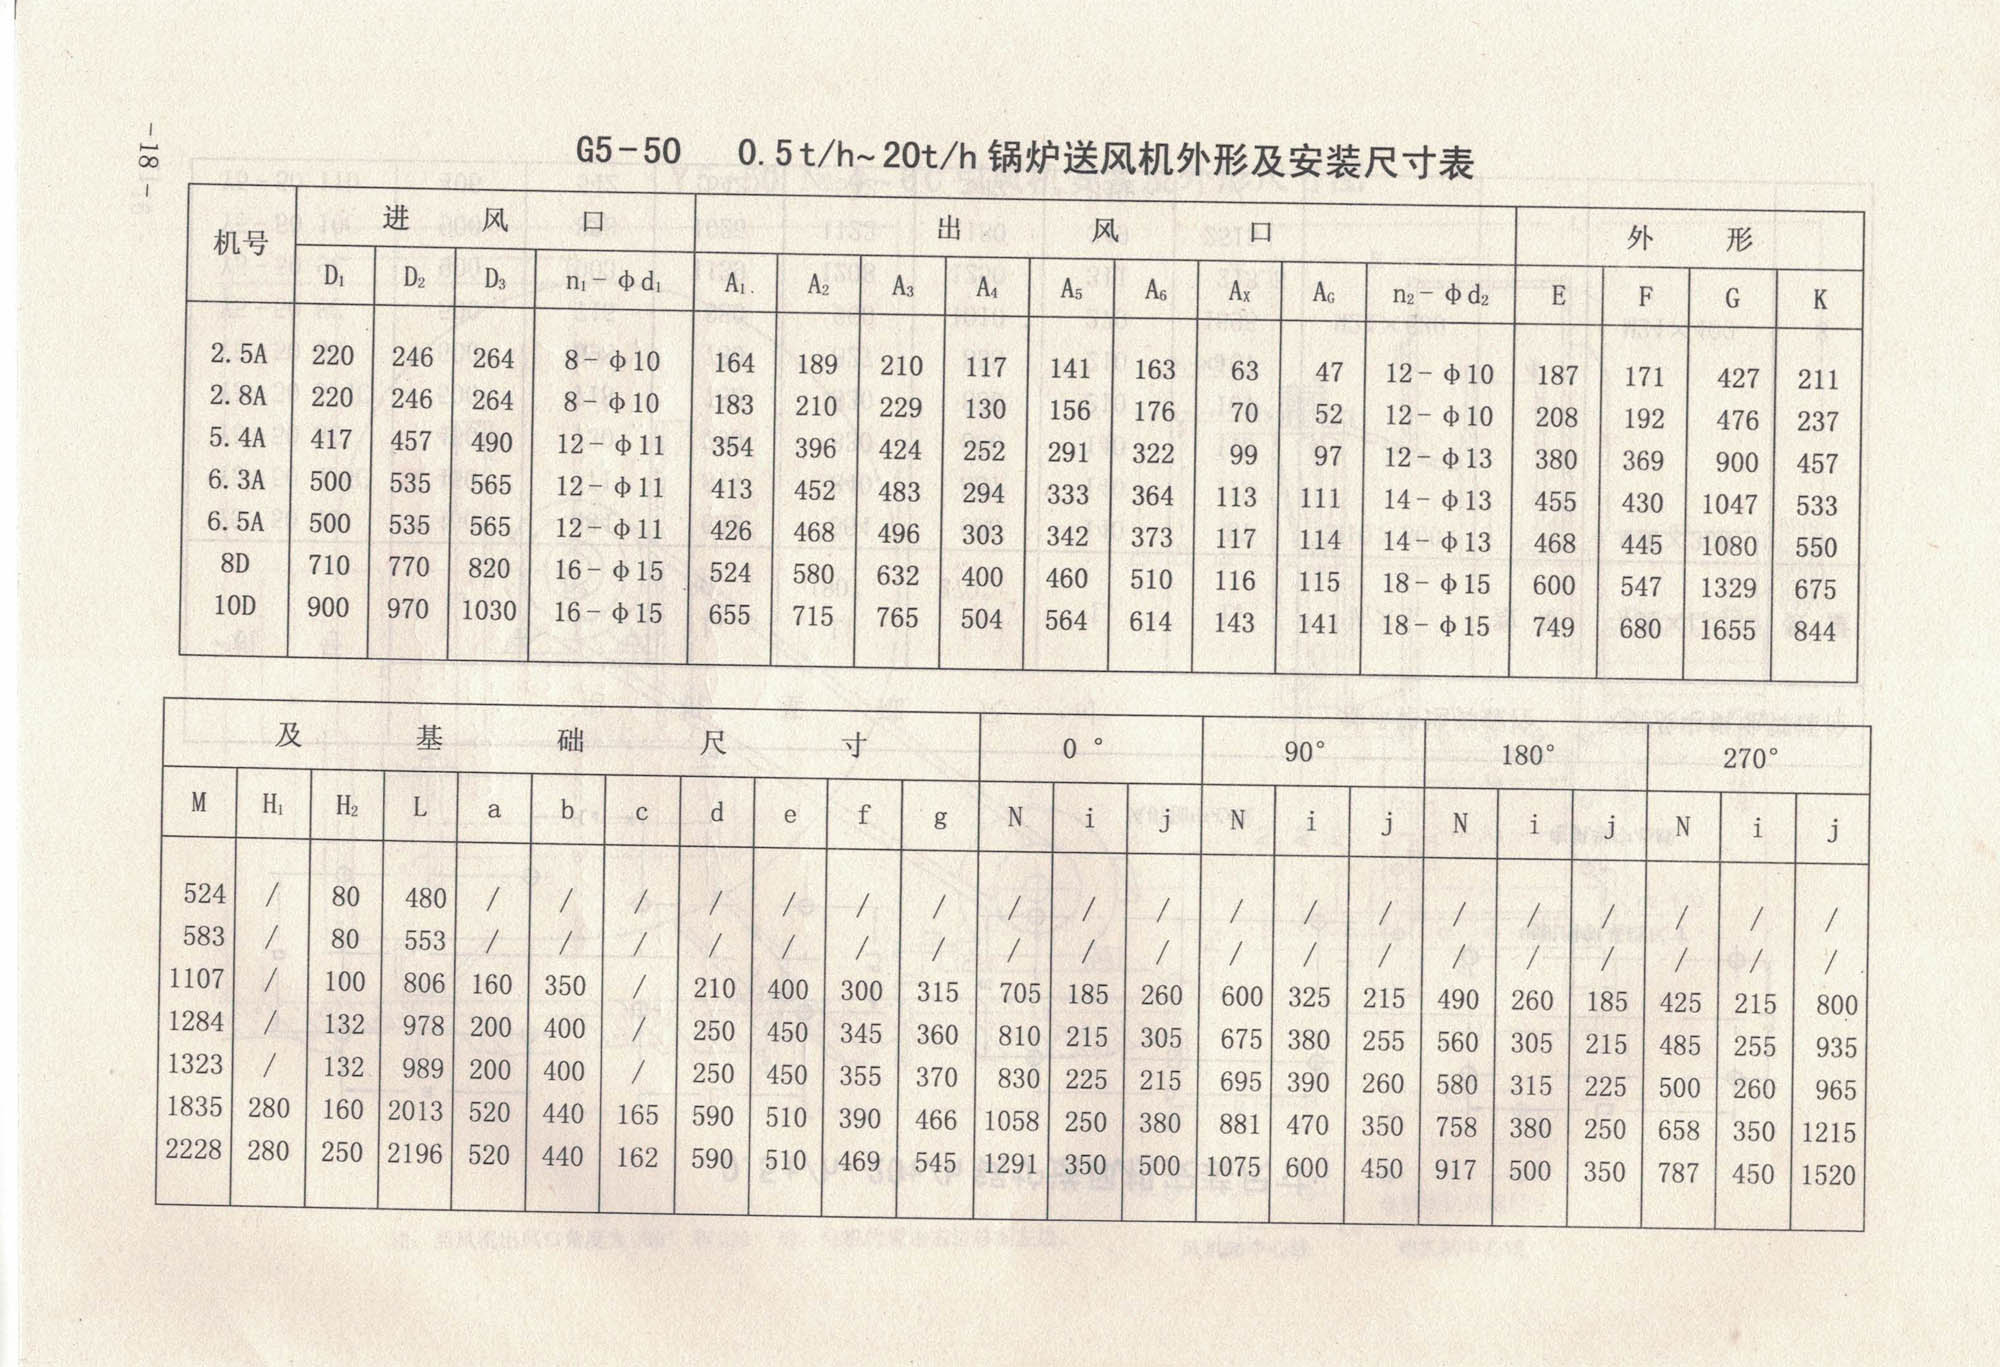 -18-
G5-50 0.5t/h~20t/h锅炉送风机外形及安装尺寸表
机号 进风口 出风口 外形
D1 D2 D3 n1-φd1 A1 A2 A3 A4 A5 A6 AX AG n2-φd2 E F G K
2.5A 220 246 264 8-φ10 164 189 210 117 141 163 63 47 12-φ10 187 171 427 211
2.8A 220 246 264 8-φ10 183 210 229 130 156 176 70 52 12-φ10 208 192 476 237
5.4A 417 457 490 12-φ11 354 396 424 252 291 322 99 97 12-φ13 380 369 900 457
6.3A 500 535 565 12-φ11 413 452 483 294 333 364 113 111 14-φ13 455 430 1047 533
6.5A 500 535 565 12-φ11 426 468 496 303 342 373 117 114 14-φ13 468 445 1080 550
8D 710 770 820 16-φ15 524 580 632 400 460 510 116 115 18-φ15 600 547 1329 675
10D 900 970 1030 16-φ15 655 715 765 504 564 614 143 141 18-φ15 749 680 1655 844
及基础尺寸 0° 90° 180° 270°
M H1 H2 L a b c d e f g N i j N i j N i j N i j
524 / 80 480 / / / / / / / / / / / / / / / / / / /
583 / 80 553 / / / / / / / / / / / / / / / / / / /
1107 / 100 806 160 350 / 210 400 300 315 705 185 260 600 325 215 490 260 185 425 215 800
1284 / 132 978 200 400 / 250 450 345 360 810 215 305 675 380 255 560 305 215 485 255 935
1323 / 132 989 200 400 / 250 450 355 370 830 225 215 695 390 260 580 315 225 500 260 965
1835 280 160 2013 520 440 165 590 510 390 466 1058 250 380 881 470 350 758 380 250 658 350 1215
2228 280 250 2196 520 440 162 590 510 469 545 1291 350 500 1075 600 450 917 500 350 787 450 1520